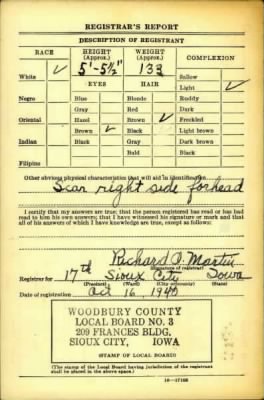 REGISTRAR'S REPORT
DESCRIPTION OF REGISTRANT
RACE HEIGHT (Approx.) WEIGHT (Approx.) COMPLEXION
White ✓ 5'-5½" 133 Sallow
EYES HAIR Light ✓
Negro Blue Blonde Ruddy
Gray Red Dark
Oriental Hazel Brown ✓ Freckled
Brown ✓ Black Light brown
Indian Black Gray Dark brown
Bald Black
Filipino
Other obvious physical characteristics that will aid in identification
Scar right side forhead
I certify that my answers are true; that the person registered has read or has had
read to him his own answers; that I have witnessed his signature or mark and that
all of his answers of which I have knowledge are true, except as follows:
Richard O. Martin
(Signature of registrar)
Registrar for 17th Sioux City Iowa
(Precinct) (Ward) (City or county) (State)
Date of registration Oct 16, 1940
WOODBURY COUNTY
LOCAL BOARD NO. 3
209 FRANCES BLDG.
SIOUX CITY, IOWA
(STAMP OF LOCAL BOARD)
(The stamp of the Local Board having jurisdiction of the registrant
shall be placed in the above space.)